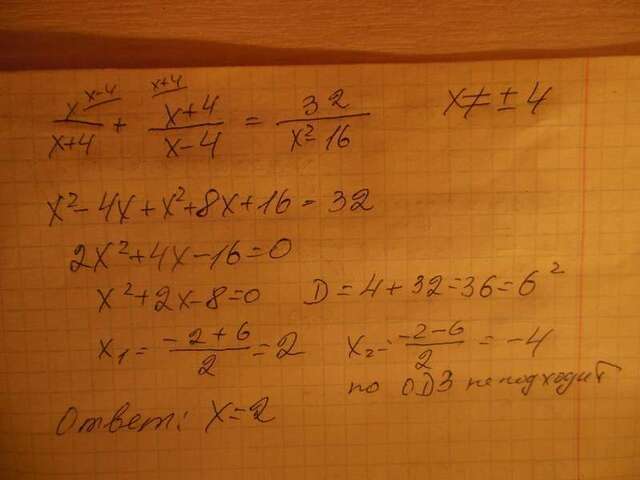 x^{x-4}/(x+4) + (x+4)^{x+4}/(x-4) = 32/(x²-16)    x ≠ ± 4
x²-4x+x²+8x+16=32
2x²+4x-16=0
x²+2x-8=0    D=4+32=36=6²
x₁=(-2+6)/2=2    x₂=(-2-6)/2=-4
по ОДЗ не подходит
Ответ: x=2